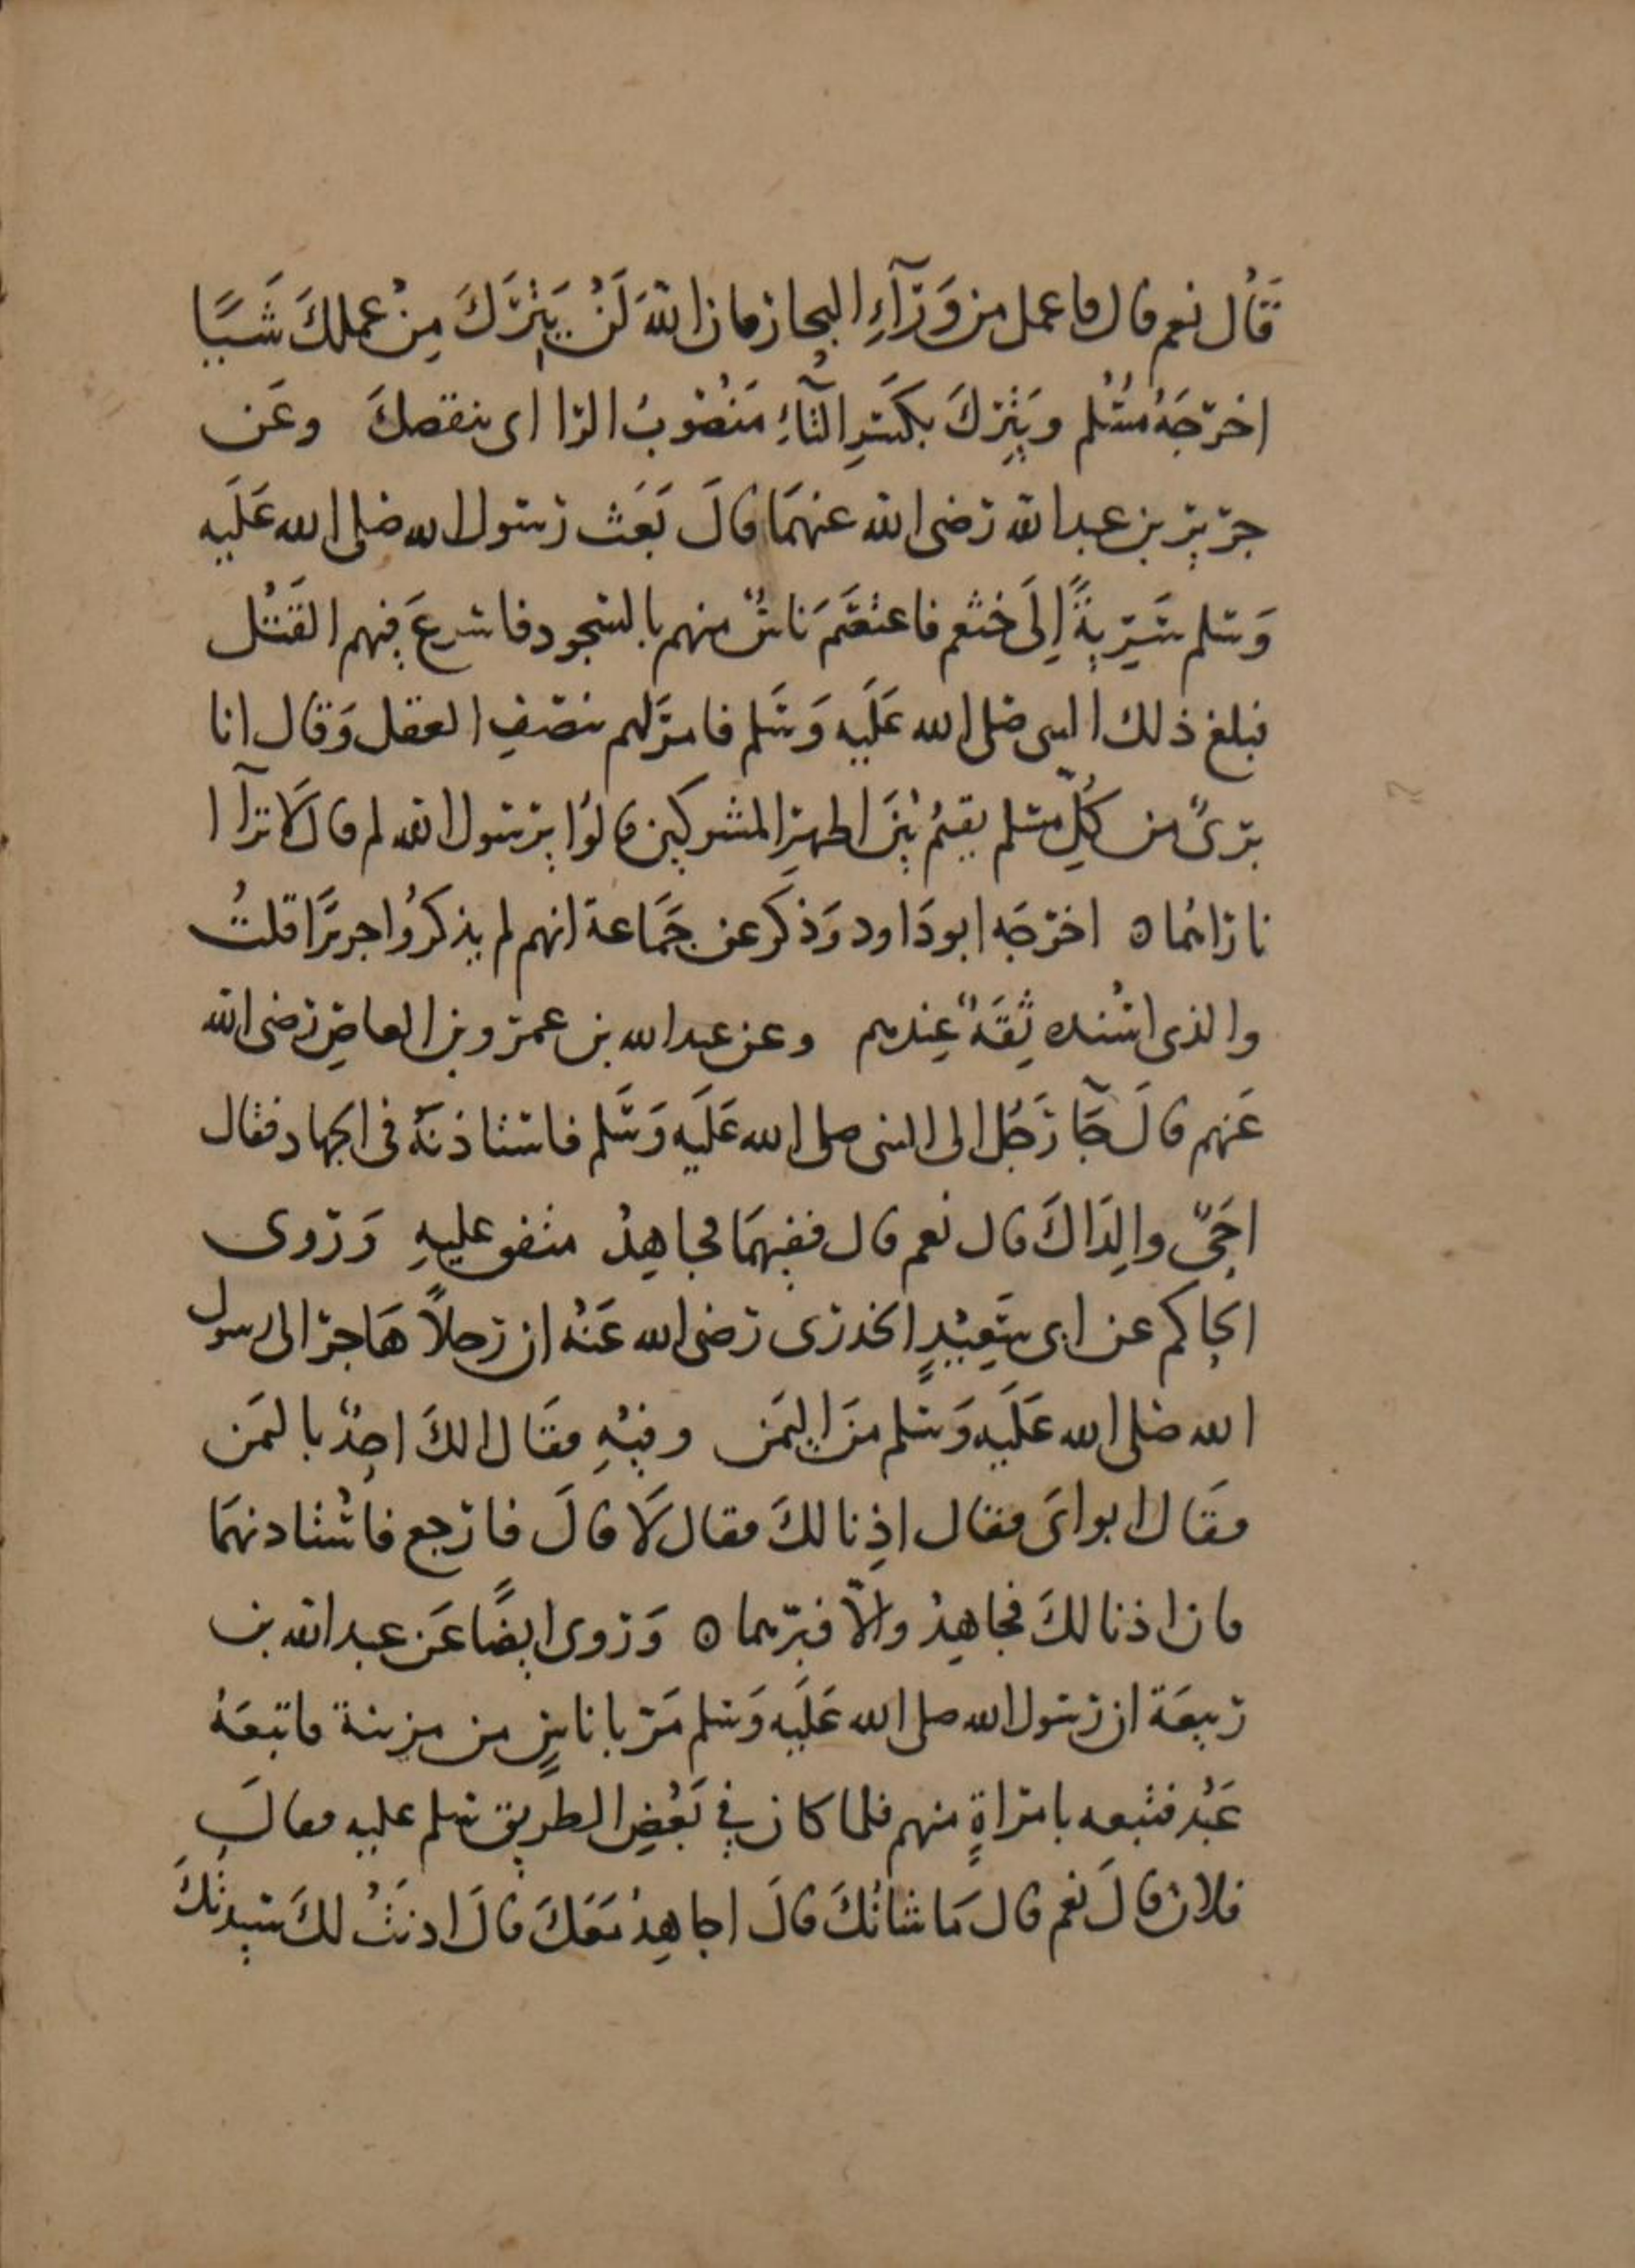 قَال نعم قال فاعمل من وَرَآءِ البحار فان اللهَ لَنْ يَتِرَكَ مِنْ عملكَ شَيًا
اخرَجَهُ مُسْلم ويَتِرَكَ بكسْرِ التَّآءِ مَنْصُوبُ الرا اى ينقصكَ وعَن
جرير بن عبد الله رضى الله عنهمَا قالَ بَعَث رسول الله صلى الله عَلَيه
وَسلم سَرِيةً إِلَى خثعم فاعتصَمَ نَاسٌ منهم بالسجود فاسرعَ فيهم القَتْل
فبلغ ذلك النبى صلى الله عَلَيه وَسَلم فامرَ لهم بنصْفِ العقل وَقال انا
برىٌ من كُلِّ مسلم يقيمُ بَيْنَ اظهرِ المشركين قالوُا يرسول الله لم قال لَا ترآا
ناراهُمَا ه اخرَجَه ابو دَاود وَذكَر عن جَمَاعة انهم لم يذكرُوا جريرًا قلتُ
والذى اسْنده ثِقَةٌ عِندهم وعن عبد الله بن عمرو بن العاصِ رضى الله
عَنهم قالَ جَآ رَجُل الى النبى صلى الله عَلَيه وَسَلم فاستاذنَهُ فى الجهاد فقال
احَىٌّ والِدَاكَ قال نعم قال ففيهمَا فجاهِدْ متفق عليهِ وَروى
الحاكم عن ابى سَعِيْدٍ الخدرى رضى الله عَنْهُ ان رجلاً هَاجرَ الى رسول
الله صلى الله عَلَيه وَسلم منَ اليمَن وفيْهِ فقَال الكَ احدٌ باليمَن
فقَال ابواىَ فقال اذِنا لكَ فقال لَا قالَ فارجع فاسْتاذنهمَا
فان اذنا لكَ فجاهِدْ والاّ فبرّهما ه وَروى ايضًا عَن عبد الله بن
ربيعَة ان رسول الله صلى الله عَلَيه وَسلم مَر باناسٍ من مزينة فاتبعَهُ
عَبْد فتبعه بامراةٍ منهم فلما كان في بَعْضِ الطريق سلم عليه فقالَ
فلان قالَ نعم قال مَا شانُكَ قالَ اجاهِدُ مَعَكَ قالَ اذنَتْ لكَ سَيدتُكَ